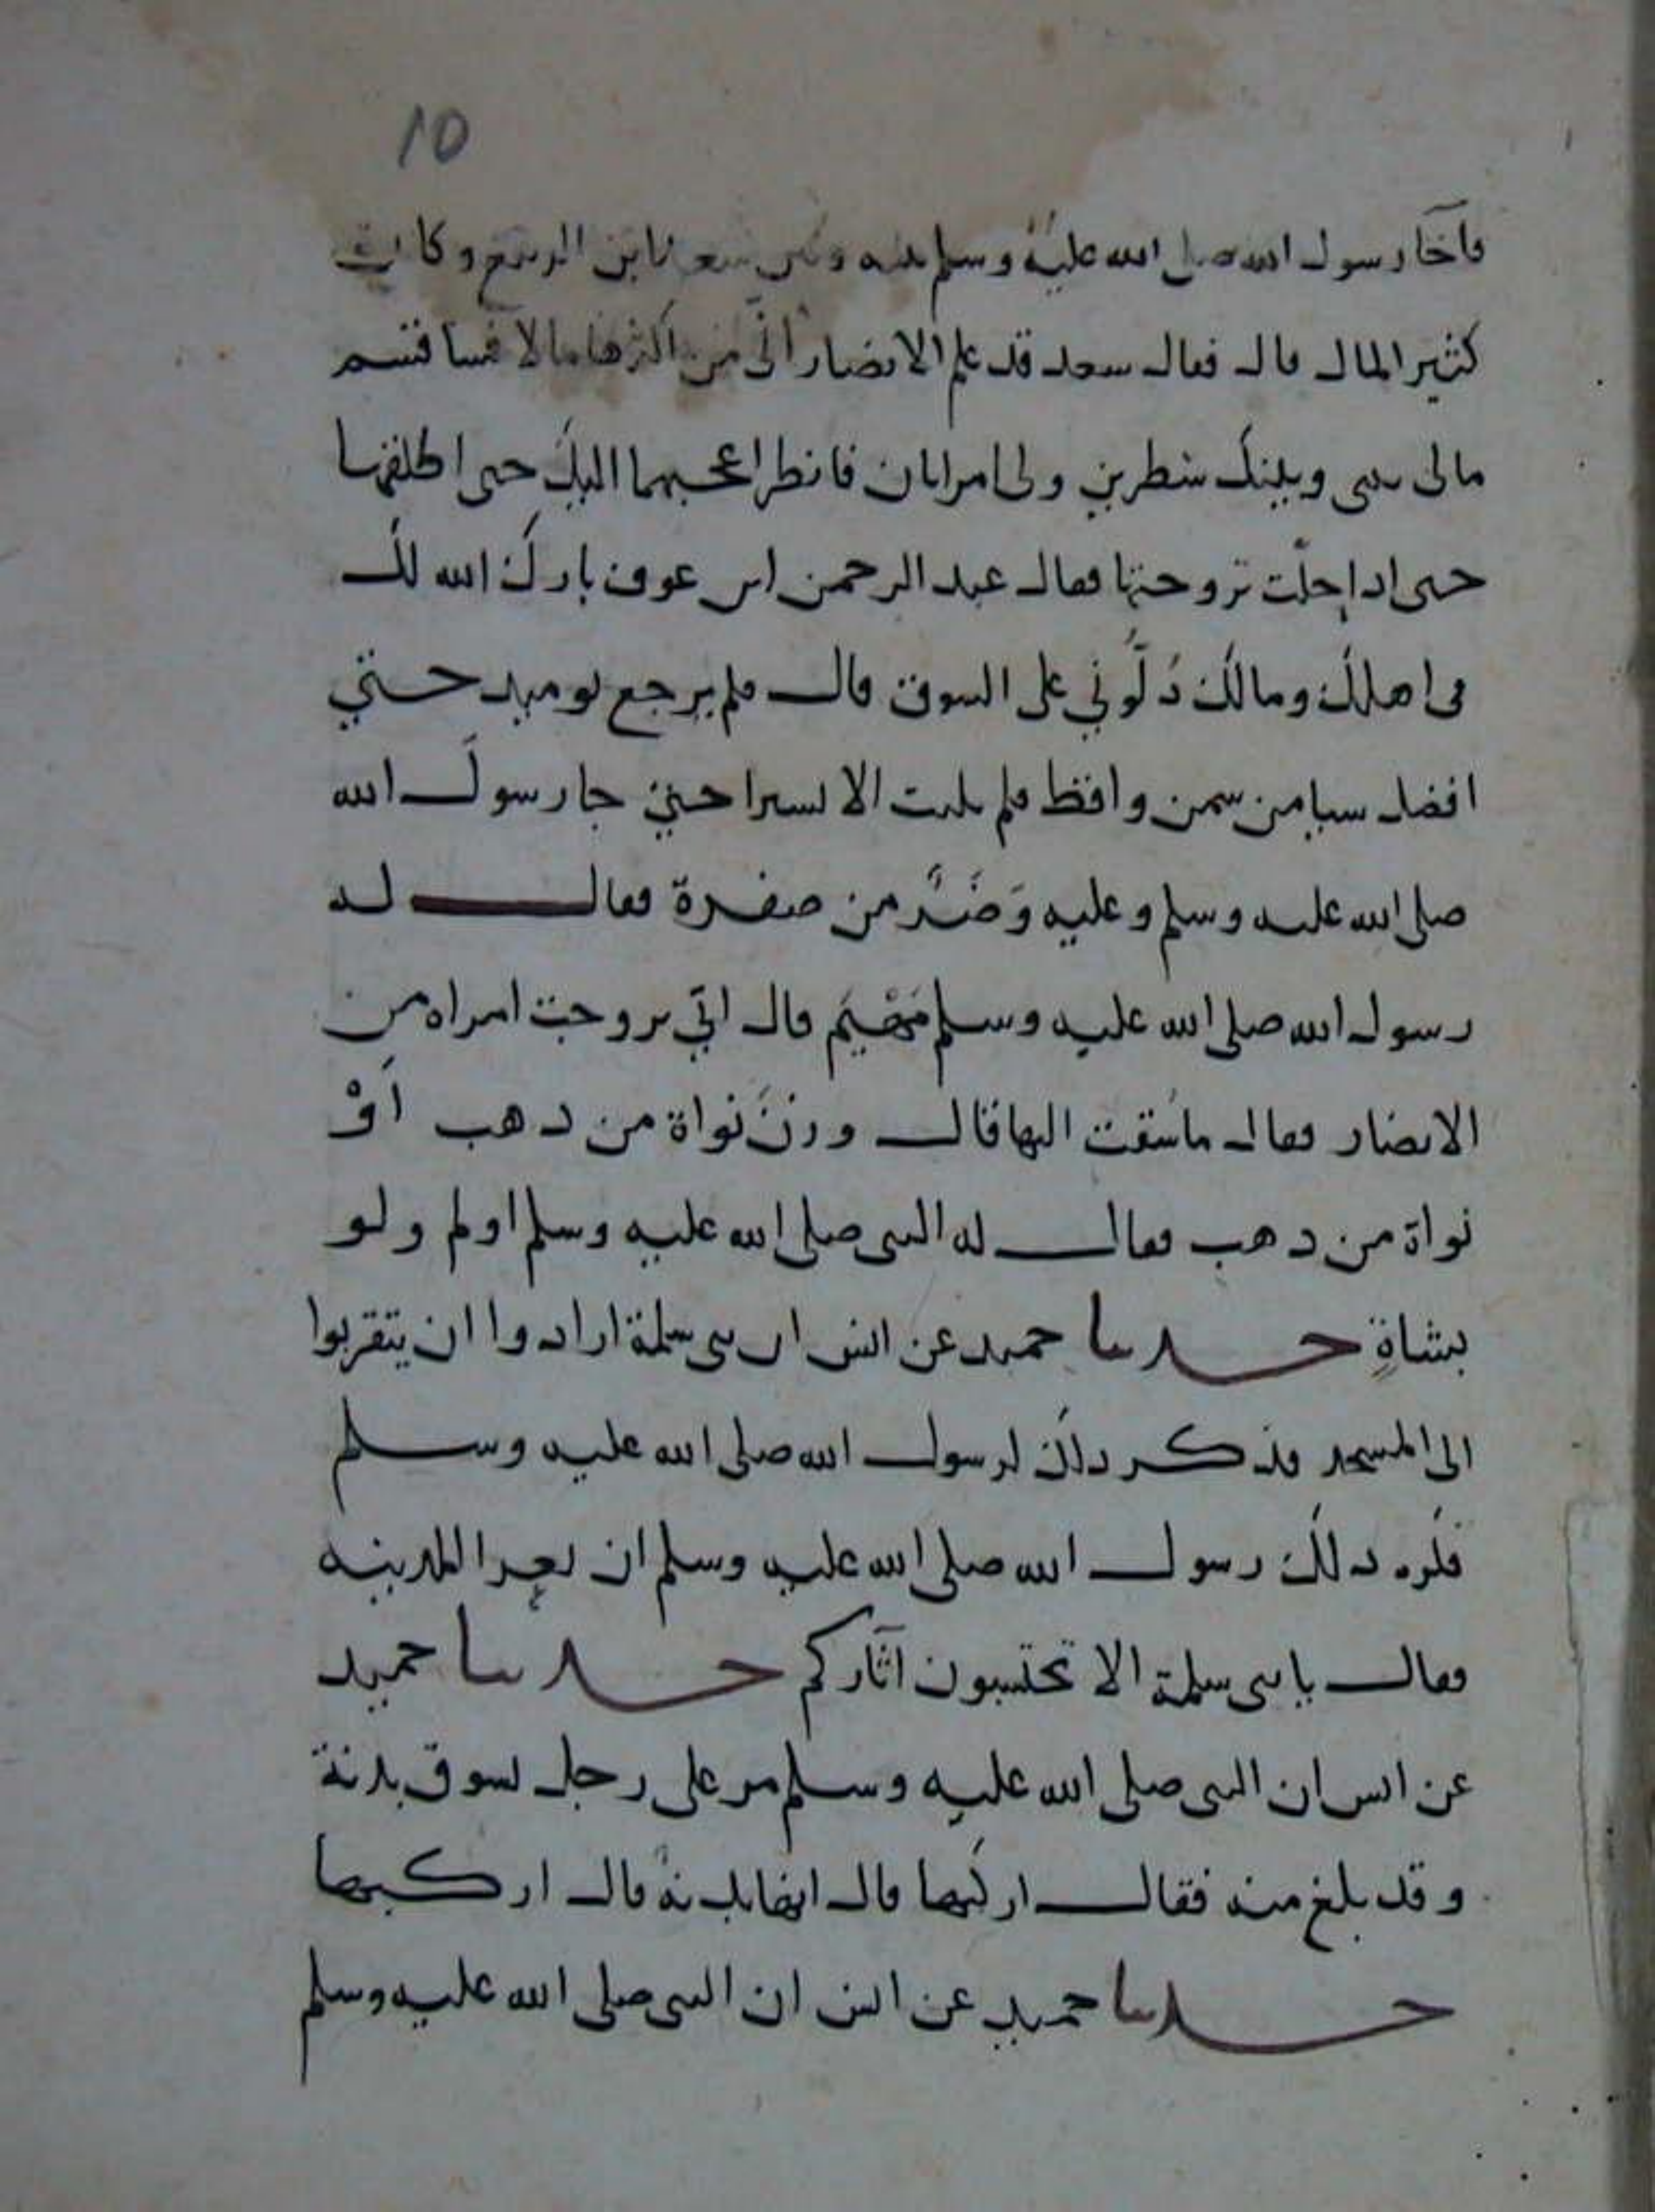 10
فآخا رسول الله صلى الله عليه وسلم بينه وبين سعد ابن الربيع وكان
كثير المال قال فقال سعد قد علم الانصار اني من اكثرها مالا فساقسم
مالى بينى وبينك شطرين ولى امراتان فانظر اعجبهما اليك حتى اطلقها
حتى اذا حلّت تزوجتها فقال عبد الرحمن ابن عوف بارك الله لك
فى اهلك ومالك دُلّوني على السوق قال فلم يرجع يوميذ حتي
افضل شيا من سمن واقط فلم يلبث الا يسيرا حتي جا رسول الله
صلى الله عليه وسلم وعليه وَضَرٌ من صفرة فقال له
رسول الله صلى الله عليه وسلم مَهْيَم قال اني تزوجت امراه من
الانصار فقال ما سُقت اليها قال وزنَ نواة من ذهب اَوْ
نواة من ذهب فقال له النبى صلى الله عليه وسلم اولم ولو
بشاةٍ حدثنا حميد عن انس ان بنى سلمة ارادوا ان يتقربوا
الى المسجد فذكر ذلك لرسول الله صلى الله عليه وسلم
فكره ذلك رسول الله صلى الله عليه وسلم ان تعرا المدينه
فقال يا بنى سلمة الا تحتسبون آثاركم حدثنا حميد
عن انس ان النبى صلى الله عليه وسلم مر على رجل يسوق بدنة
وقد بلغ منه فقال اركبها قال انها بدنة قال اركبها
حدثنا حميد عن انس ان النبى صلى الله عليه وسلم